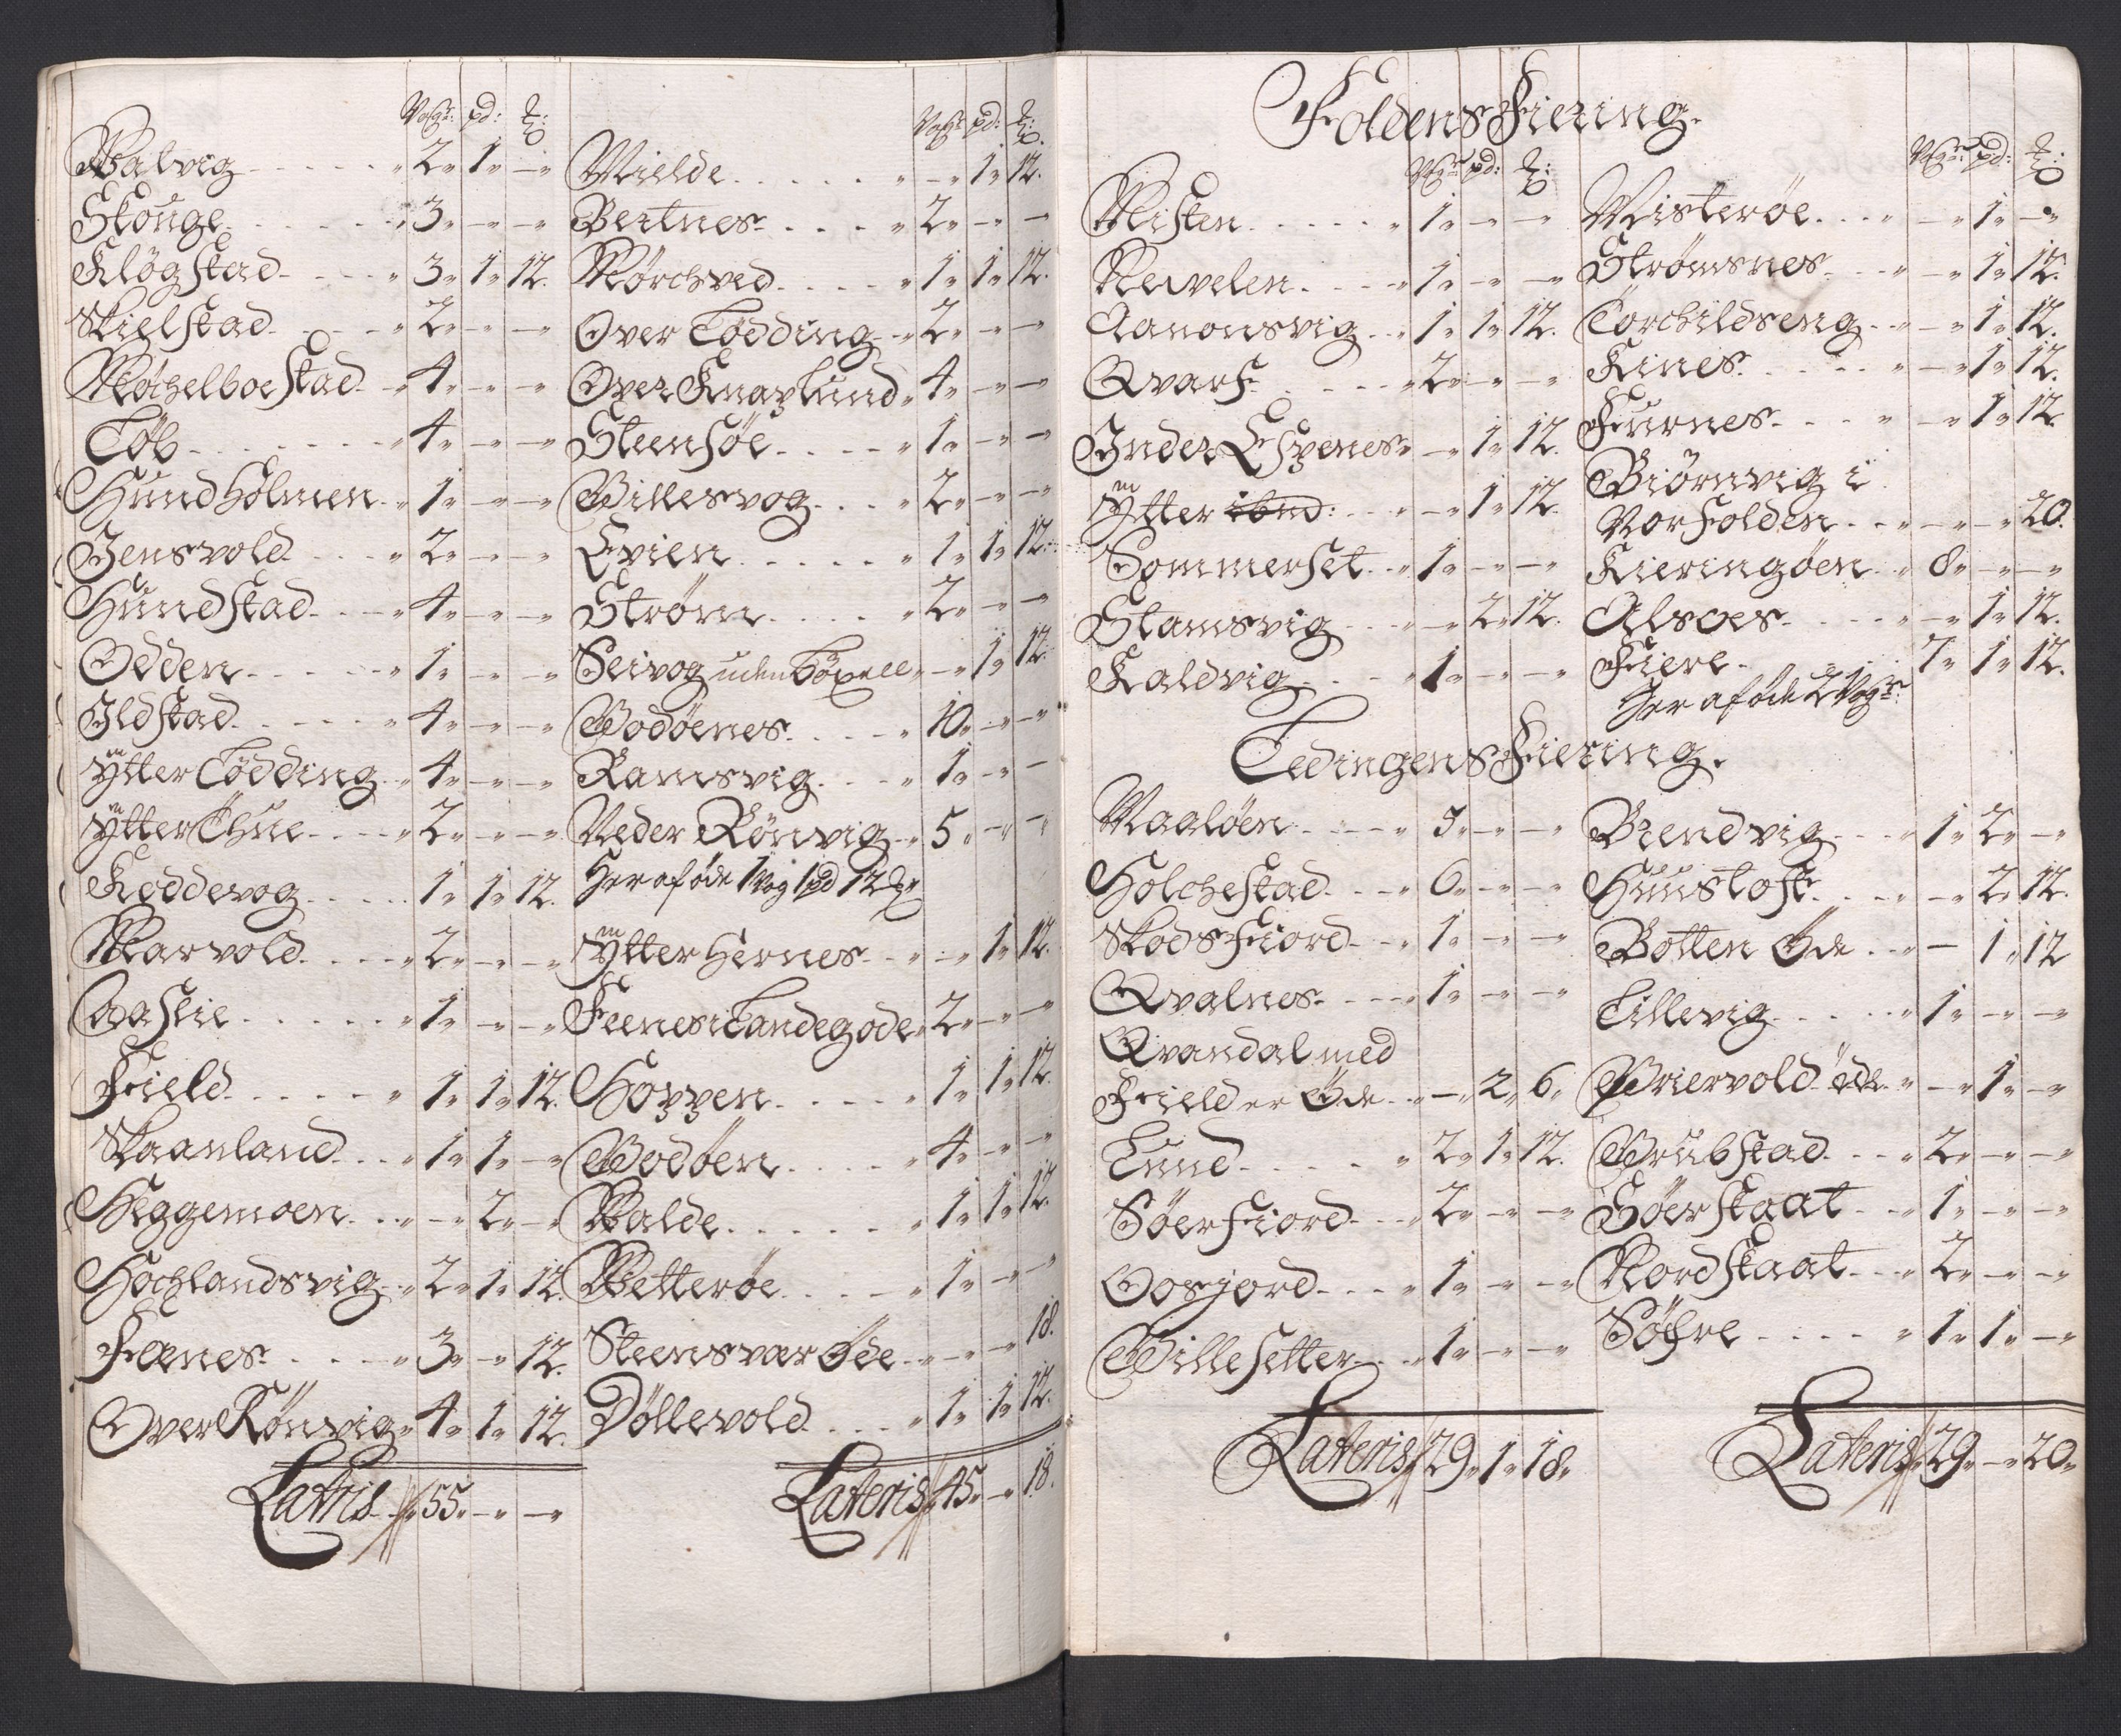 Vogr: pd: ℔:
Walvig - - - - - " 2 " 1 " - "
Skouge - - - - - " 3 " - " - "
Kløgstad - - - - " 3 " 1 " 12.
Skielstad - - - - " 2 " - " - "
Møchelboestad - " 4 " - " - "
Løb - - - - - - " 4 " - " - "
Hundholmen - " 1 " - " - "
Jensvold - - - " 2 " - " - "
Hundstad - - - " 4 " - " - "
Odden - - - - - " 1 " - " - "
Ildstad - - - - " 4 " - " - "
Ytter Lødding - " 4 " - " - "
Ytter Thue - - - " 2 " - " - "
Koddevog . . . . . 1 " 1 " 12.
Marvold - - - - " 2 " - " - "
Aaslie . . . . . " 1 " - " - "
Field . . . . - " 1 " 1 " 12.
Skaanland - - - " 1 " 1 " - "
Heggemoen . . . " - " 2 " - "
Hochlandsvig - " 2 " 1 " 12.
Fænes . . . - " 3 " - " 12.
Over Rønvig " 4 " 1 " 12.
Lateris - " 55 " - " - "
Vogr pd: ℔:
Mielde . . . . . " - " 1 " 12.
Bertnes - . . . " 2 " - " -
Mørchved . . . . " 1 " 1 " 12.
Over Lødding - " 2 " - " -
Over Knaplund " 4 " - " -
Steensøe . . . . " 1 " - " -
Willesvog . . . " 2 " - " -
Evien . . . . . " 1 " 1 " 12.
Strøm . . . . " 2 " - " -
Seivog uden - - 1 " 12.
Bodøenes . . . - " 10 " - " -
Ramsvig . . . " 1 " - " -
Neder Rønvig " 5 " - " -
Her af øde 1 Vog 1 pd 12 ℔
Ytter Hernes - - " - " 1 " 12.
Feenes i Landegode " 2 " - " -
Hoppen . . . . " 1 " 1 " 12.
Bodøen . . . . " 4 " - " -
Walde . . . . . " 1 " 1 " 12.
Wetterøe . . . - " 1 " - " -
Steensvar Øde - " - " - " 18.
Døllevold . . . " 1 " 1 " 12.
Lateris " 45 " - " 18.
Foldens Fiering.
Vogr pd: ℔:
Misten . . . . . " 1 " - " - "
Mevelen . . . - " 1 " - " - "
Aanonsvig . . " 1 " 1 " 12.
Qvarf . . . - " 2 " - " - "
Inder Espenes " - " 1 " 12.
Ytter ibnd: . . . " - " 1 " 12.
Sommerset . . " 1 " - " - "
Stamsvig . . . " - " 2 " 12.
Kaldvig . . - " 1 " - " - "
Vogr: pd: ℔:
Misterøe . . . " - " 1 " - "
Strømsnes - . . " - " 1 " 12.
Torchildseng . . " - " 1 " 12.
Kines . . . . " - " 1 " 12.
Furnes . . . . " - " 1 " 12.
Biørnvig i
Norfolden . . " - " - " 20.
Kieringøen . " 8 " - " - "
Alsoes . . . . " - " 1 " 12.
Fiere . 7 " 1 " 12.
Her af øde 2 Vogr.
Ledingens Fiering.
Maaløen . . . - " 5 " - " - "
Holchestad . . . " 6 " - " - "
Skodsfiord - - " 1 " - " - "
Qvalnes - . . . " 1 " - " - "
Qvandal med
Field er Øde . . " - " 2 " 6 "
Lund . . . . " 2 " 1 " 12.
Søerfiord - . . " 2 " - " - "
Oosjord - . . . " 1 " - " - "
Willesetter . . " 1 " - " - "
Lateris " 29 " 1 " 18 "
Brendvig . . . " 1 " 2 " - "
Huustoft . . . " - " 2 " 12.
Botten Øde . . " - 1 " 12
Tillevig . . . . " 1 " - " - "
Briervold øde . " - " 1 " - "
Grubstad . . . " 2 " - " - "
Søerstaat . . " 1 " - " - "
Nordstaat . . " 2 " - " - "
Søfre . . . . " 1 " 1 " - "
Lateris " 29 " - " 20 "